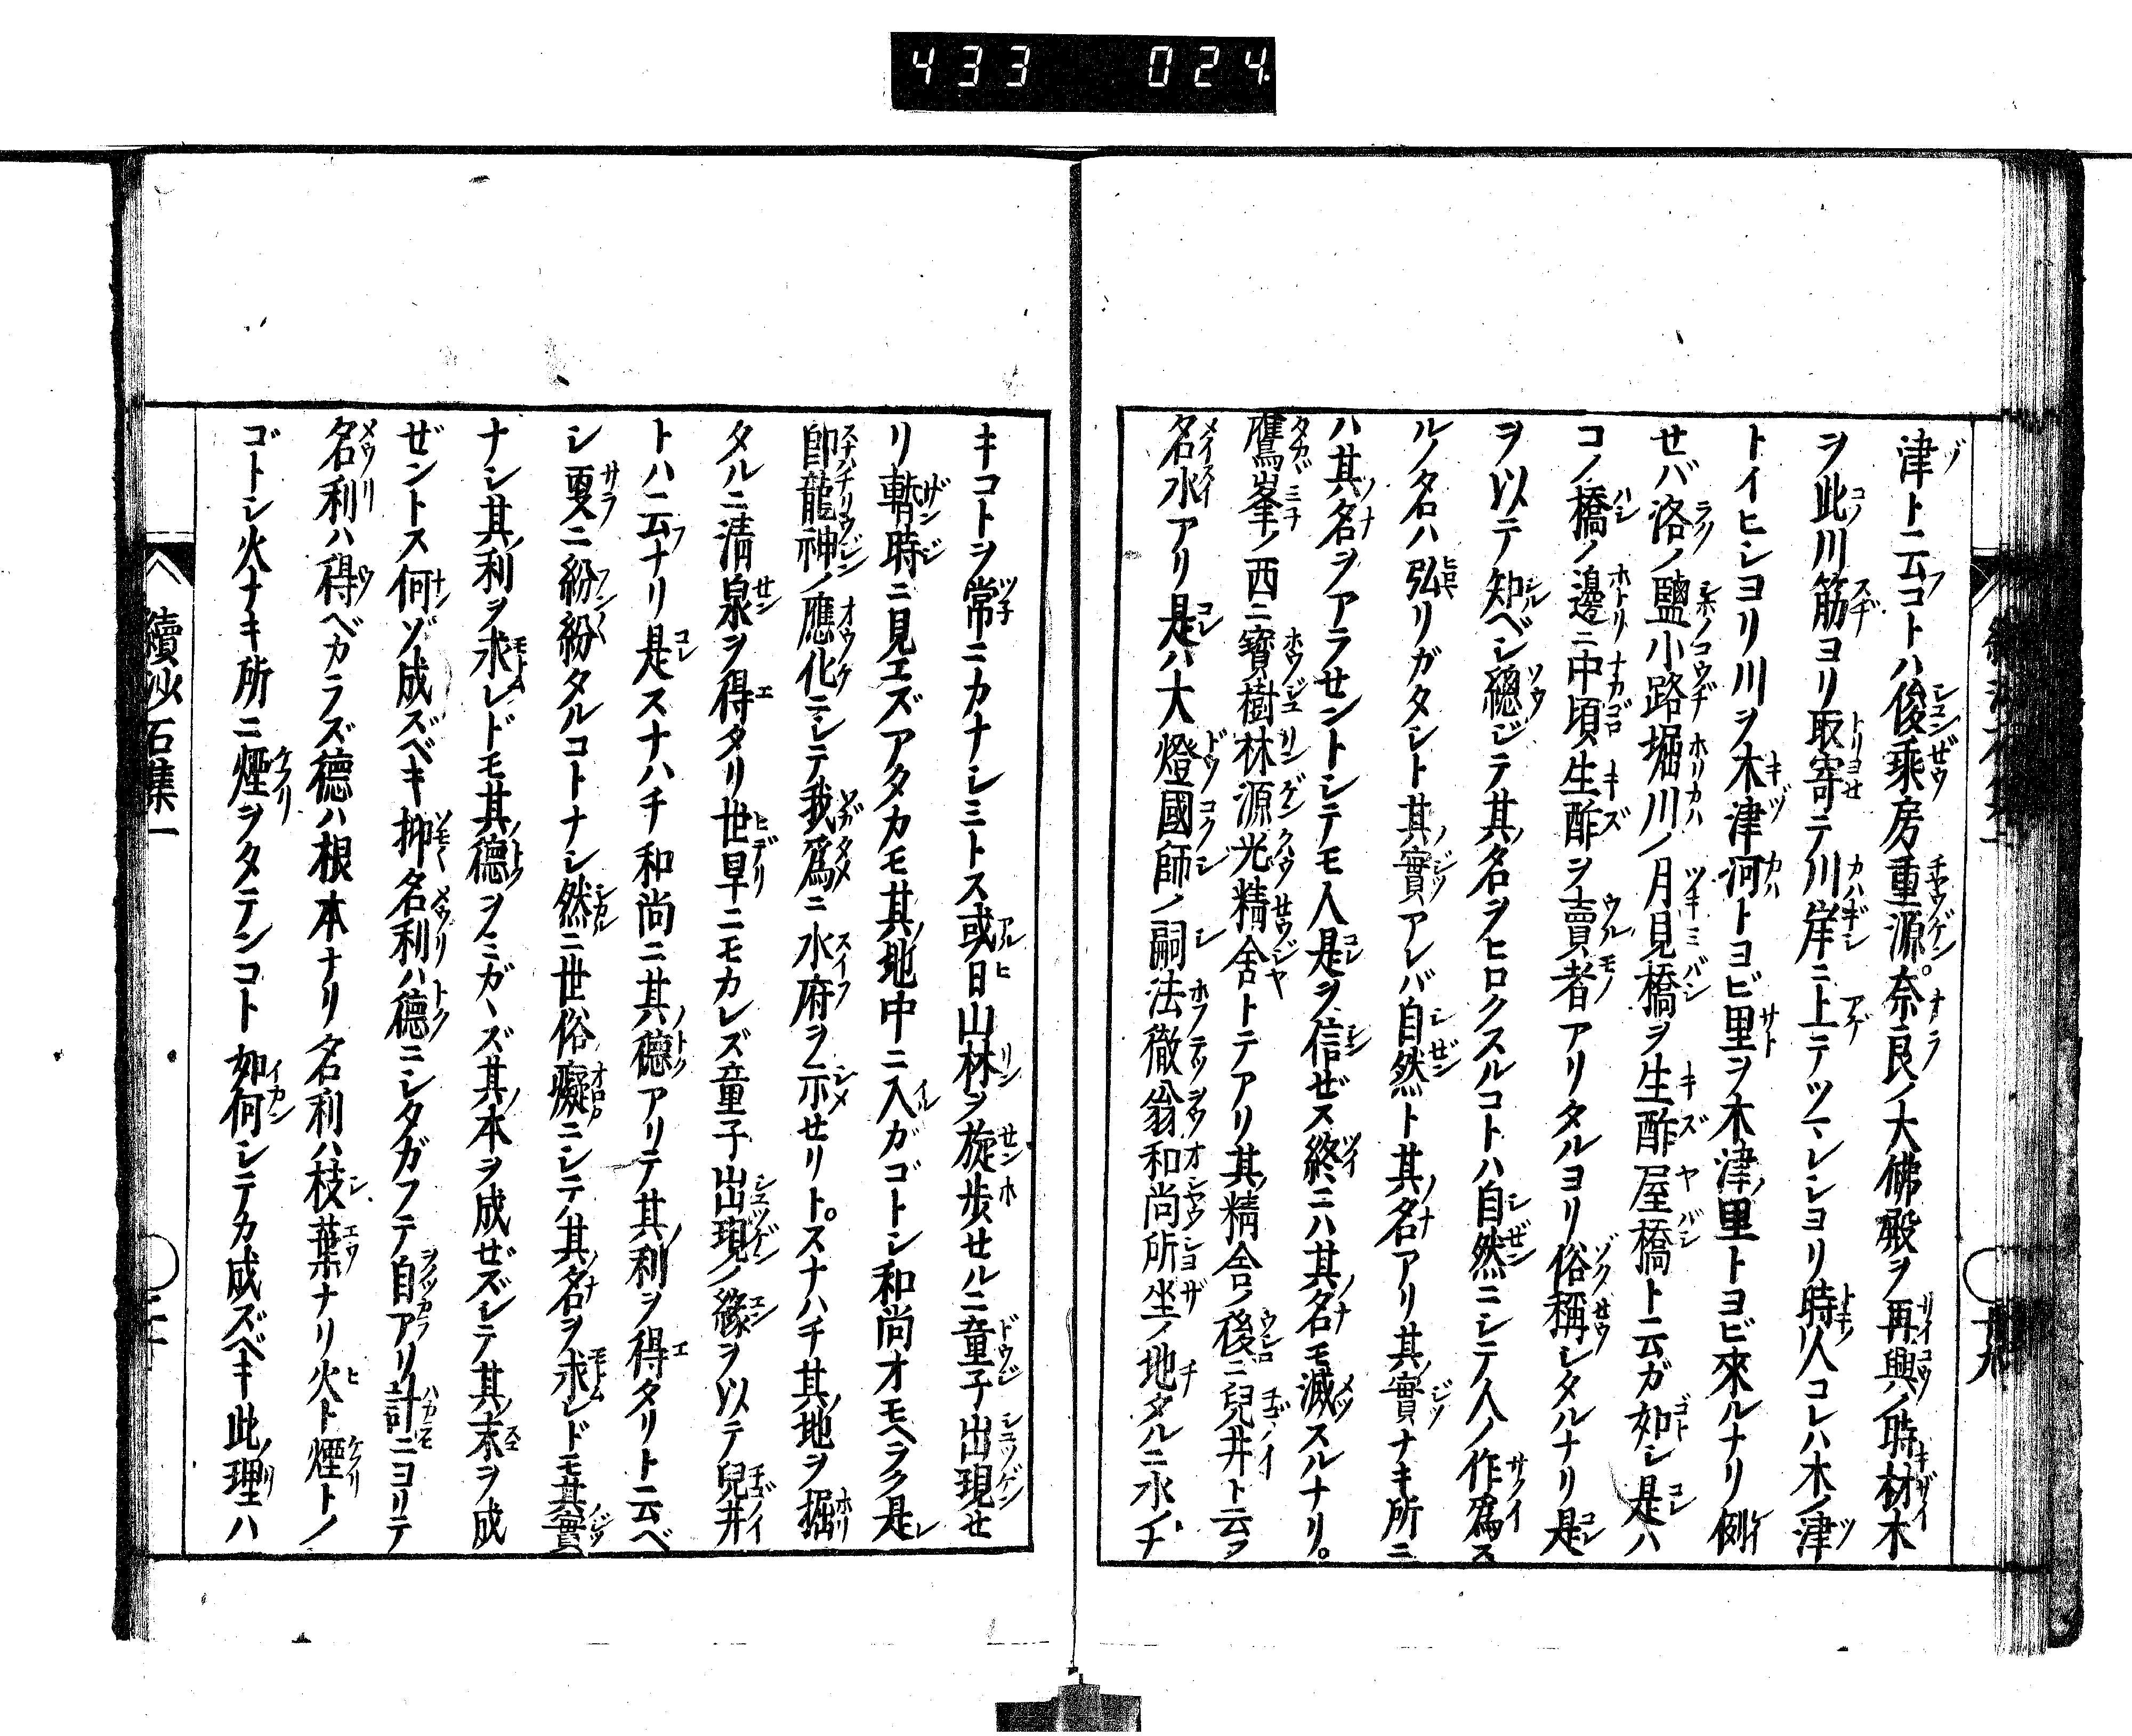 433 024
津ト云コトハ俊乘房重源。奈良ノ大佛殿ヲ再興ノ時材木
ヲ此川筋ヨリ取寄テ川岸ニ上テツミシヨリ時人コレハ木ノ津
トイヒシヨリ川ヲ木津河トヨビ里ヲ木津ノ里トヨビ來ルナリ例
セバ洛ノ鹽小路堀川ノ月見橋ヲ生酢屋橋ト云ガ如シ是ハ
コノ橋ノ邊ニ中頃生酢ヲ賣者アリタルヨリ俗稱シタルナリ是
ヲ以テ知ベシ總ジテ其名ヲヒロクスルコトハ自然ニシテ人ノ作爲ス
ルノ名ハ弘リガタシト其實アレバ自然ト其名アリ其實ナキ所ニ
ハ其名ヲアラセントシテモ人是ヲ信ゼス終ニハ其名モ滅スルナリ。
鷹峯ノ西ニ寶樹林源光精舍トテアリ其精舍ノ後ニ兒井ト云フ
名水アリ是ハ大燈國師ノ嗣法徹翁和尚所坐ノ地タルニ水ノチ
キコトヲ常ニカナシミトス或日山林ヲ旋歩セルニ童子出現セ
リ暫時ニ見エズアタカモ其地中ニ入ガゴトシ和尚オモヘラク是
卽龍神ノ應化ニシテ我爲ニ水府ヲ示セリト。スナハチ其地ヲ掘
タルニ清泉ヲ得タリ世旱ニモカレズ童子出現ノ緣ヲ以テ兒井
トハ云ナリ是スナハチ和尚ニ其德アリテ其利ヲ得タリト云ベ
シ更ニ紛紛タルコトナシ然ニ世俗癡ニシテ其名ヲ求レドモ其實
ナシ其利ヲ求レドモ其德ヲミガヽズ其本ヲ成ゼズシテ其末ヲ成
ゼントス何ゾ成ズベキ抑名利ハ德ニシタガフテ自アリ計ニヨリテ
名利ハ得ベカラズ德ハ根本ナリ名利ハ枝葉ナリ火ト煙トノ
ゴトシ火ナキ所ニ煙ヲタテンコト如何シテカ成ズベキ此理ハ
續沙石集一